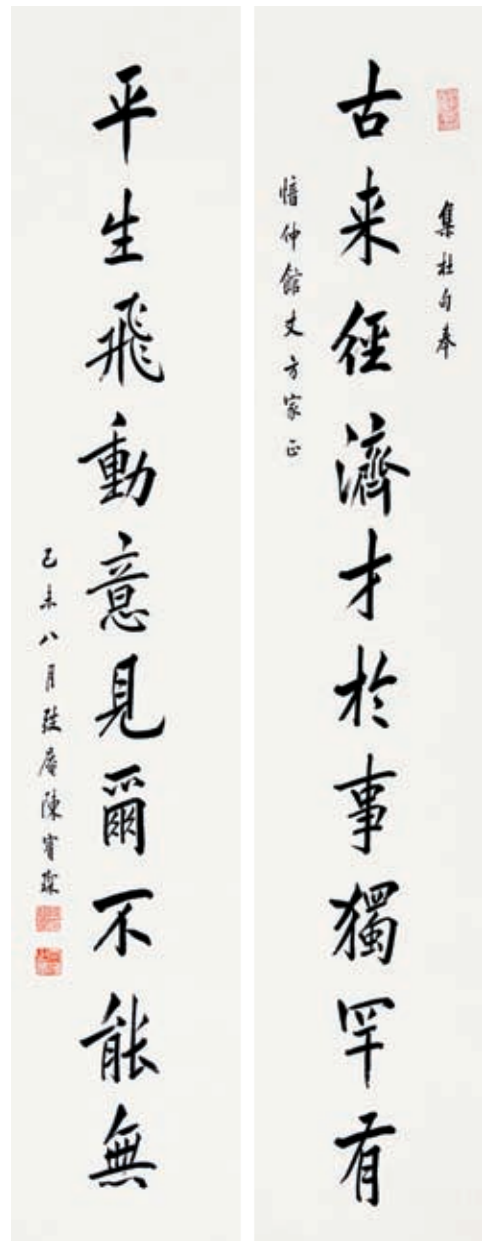 集杜句奉
古来經濟才於事獨罕有
愔仲館丈方家正
平生飛動意見爾不能無
己未八月弢庵陳寶琛